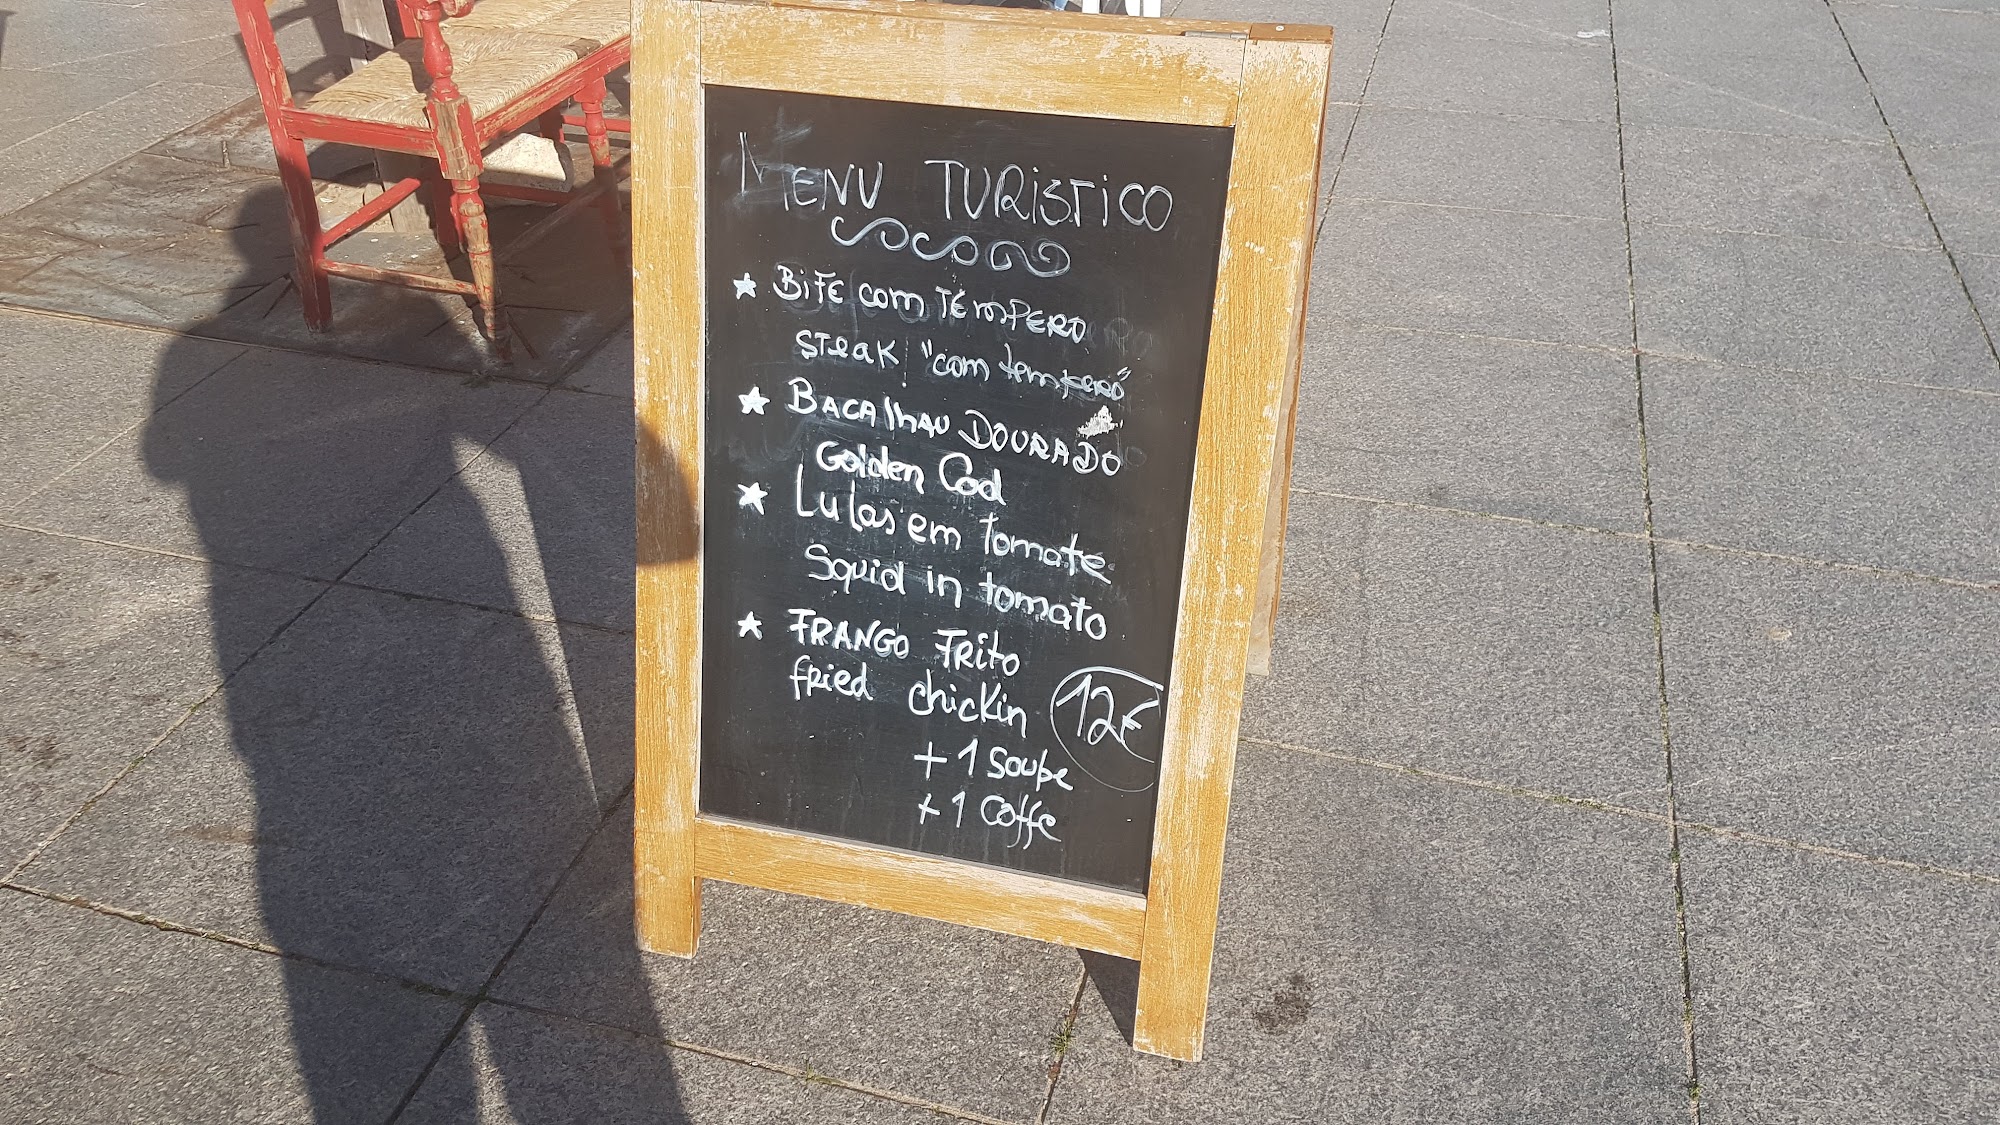 "MENU TURISTICO
BIFE com TEMPERO
STeaK "com tempero"
BACAlhAU DOURADO
Golden Cod
Lulas em tomate
Squid in tomato
FRANGO FRito
fRied chicKin
12€
+ 1 Soupe
+ 1 Coffe